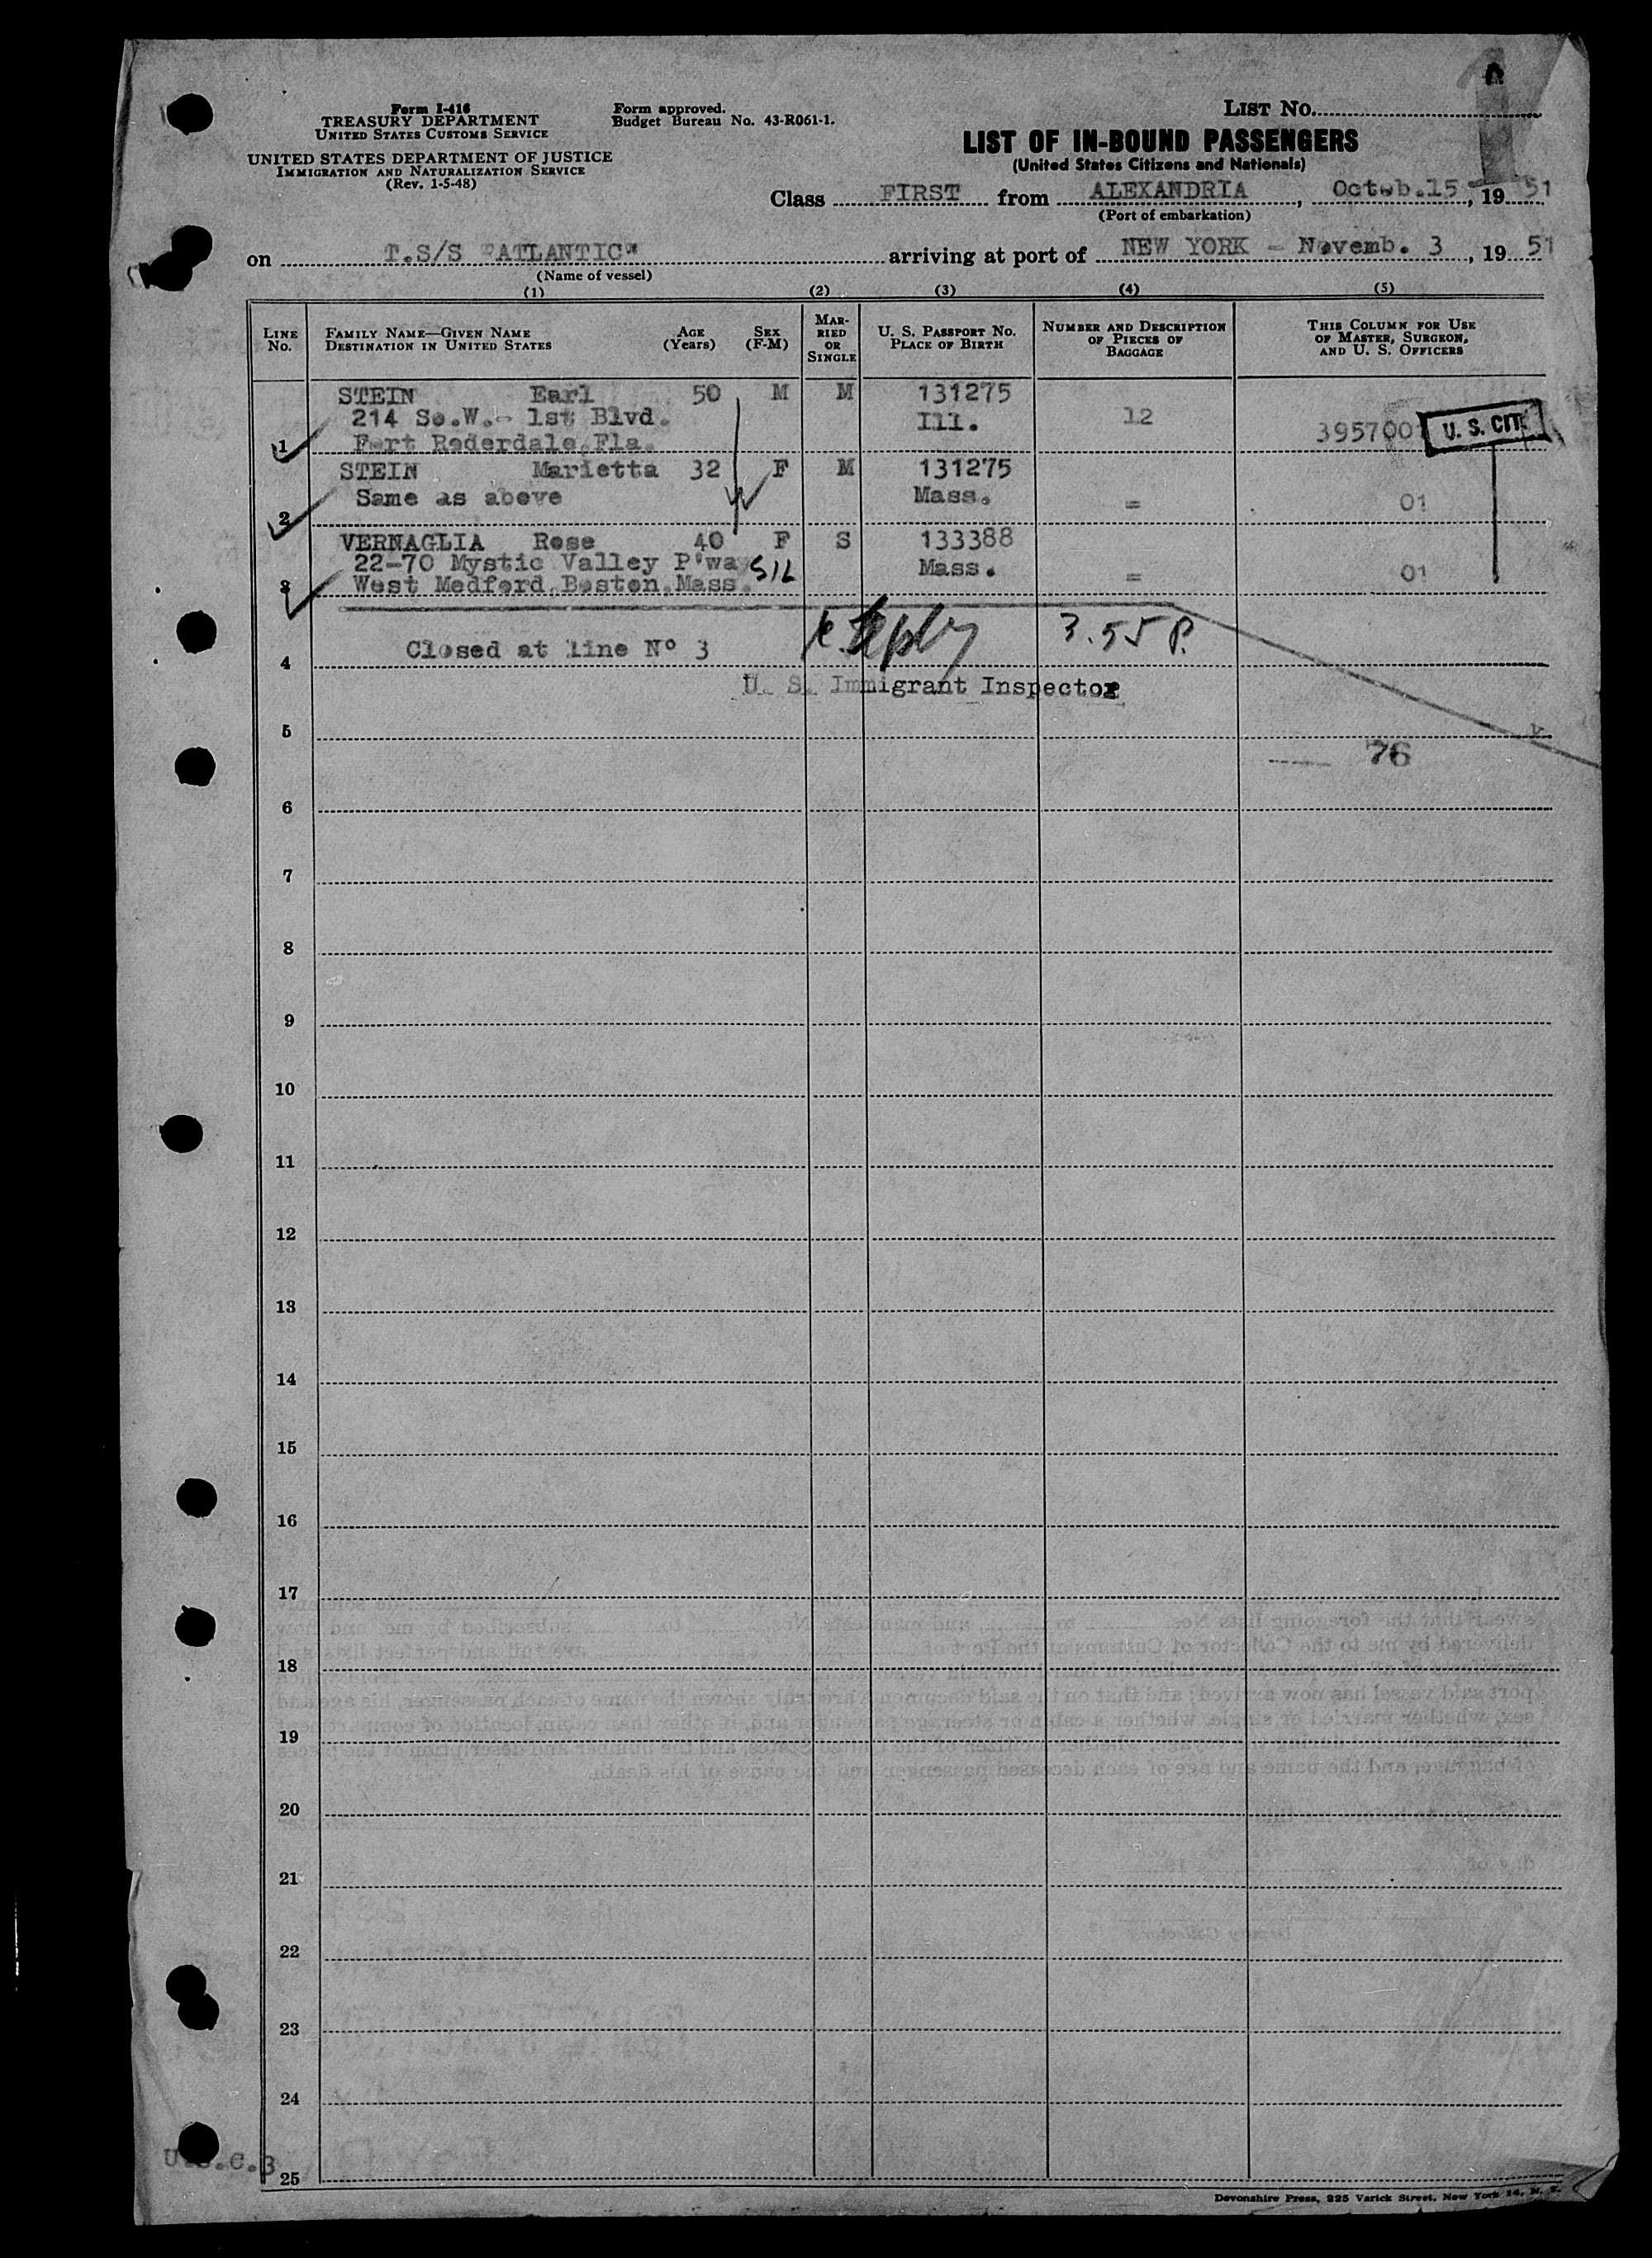 Form I-416
TREASURY DEPARTMENT
UNITED STATES CUSTOMS SERVICE
UNITED STATES DEPARTMENT OF JUSTICE
IMMIGRATION AND NATURALIZATION SERVICE
(Rev. 1-5-48)
Form approved.
Budget Bureau No. 43-R061-1.
LIST No.
LIST OF IN-BOUND PASSENGERS
(United States Citizens and Nationals)
Class FIRST from ALEXANDRIA, Octob.15, 1951
(Port of embarkation)
on T.S/S "ATLANTIC" arriving at port of NEW YORK - Novemb. 3, 1951
(Name of vessel)
(1) (2) (3) (4) (5)
LINE No. FAMILY NAME—GIVEN NAME DESTINATION IN UNITED STATES AGE (Years) SEX (F-M) MARRIED OR SINGLE U. S. PASSPORT NO. PLACE OF BIRTH NUMBER AND DESCRIPTION OF PIECES OF BAGGAGE THIS COLUMN FOR USE OF MASTER, SURGEON, AND U. S. OFFICERS
STEIN Earl 50 M M 131275
214 So.W.- 1st Blvd. Ill. 12
1 Fort Roderdale,Fla. 395700 U. S. CIT.
STEIN Marietta 32 F M 131275
Same as above Mass. = 01
2
VERNAGLIA Rose 40 F S 133388
22-70 Mystic Valley P'way SIL Mass. = 01
3 West Medford,Boston,Mass.
Closed at line Nº 3 3.55 P.
4
U. S. Immigrant Inspector
5
76
6
7
8
9
10
11
12
13
14
15
16
17
18
19
20
21
22
23
24
25
Devonshire Press, 225 Varick Street, New York 14, N. Y.